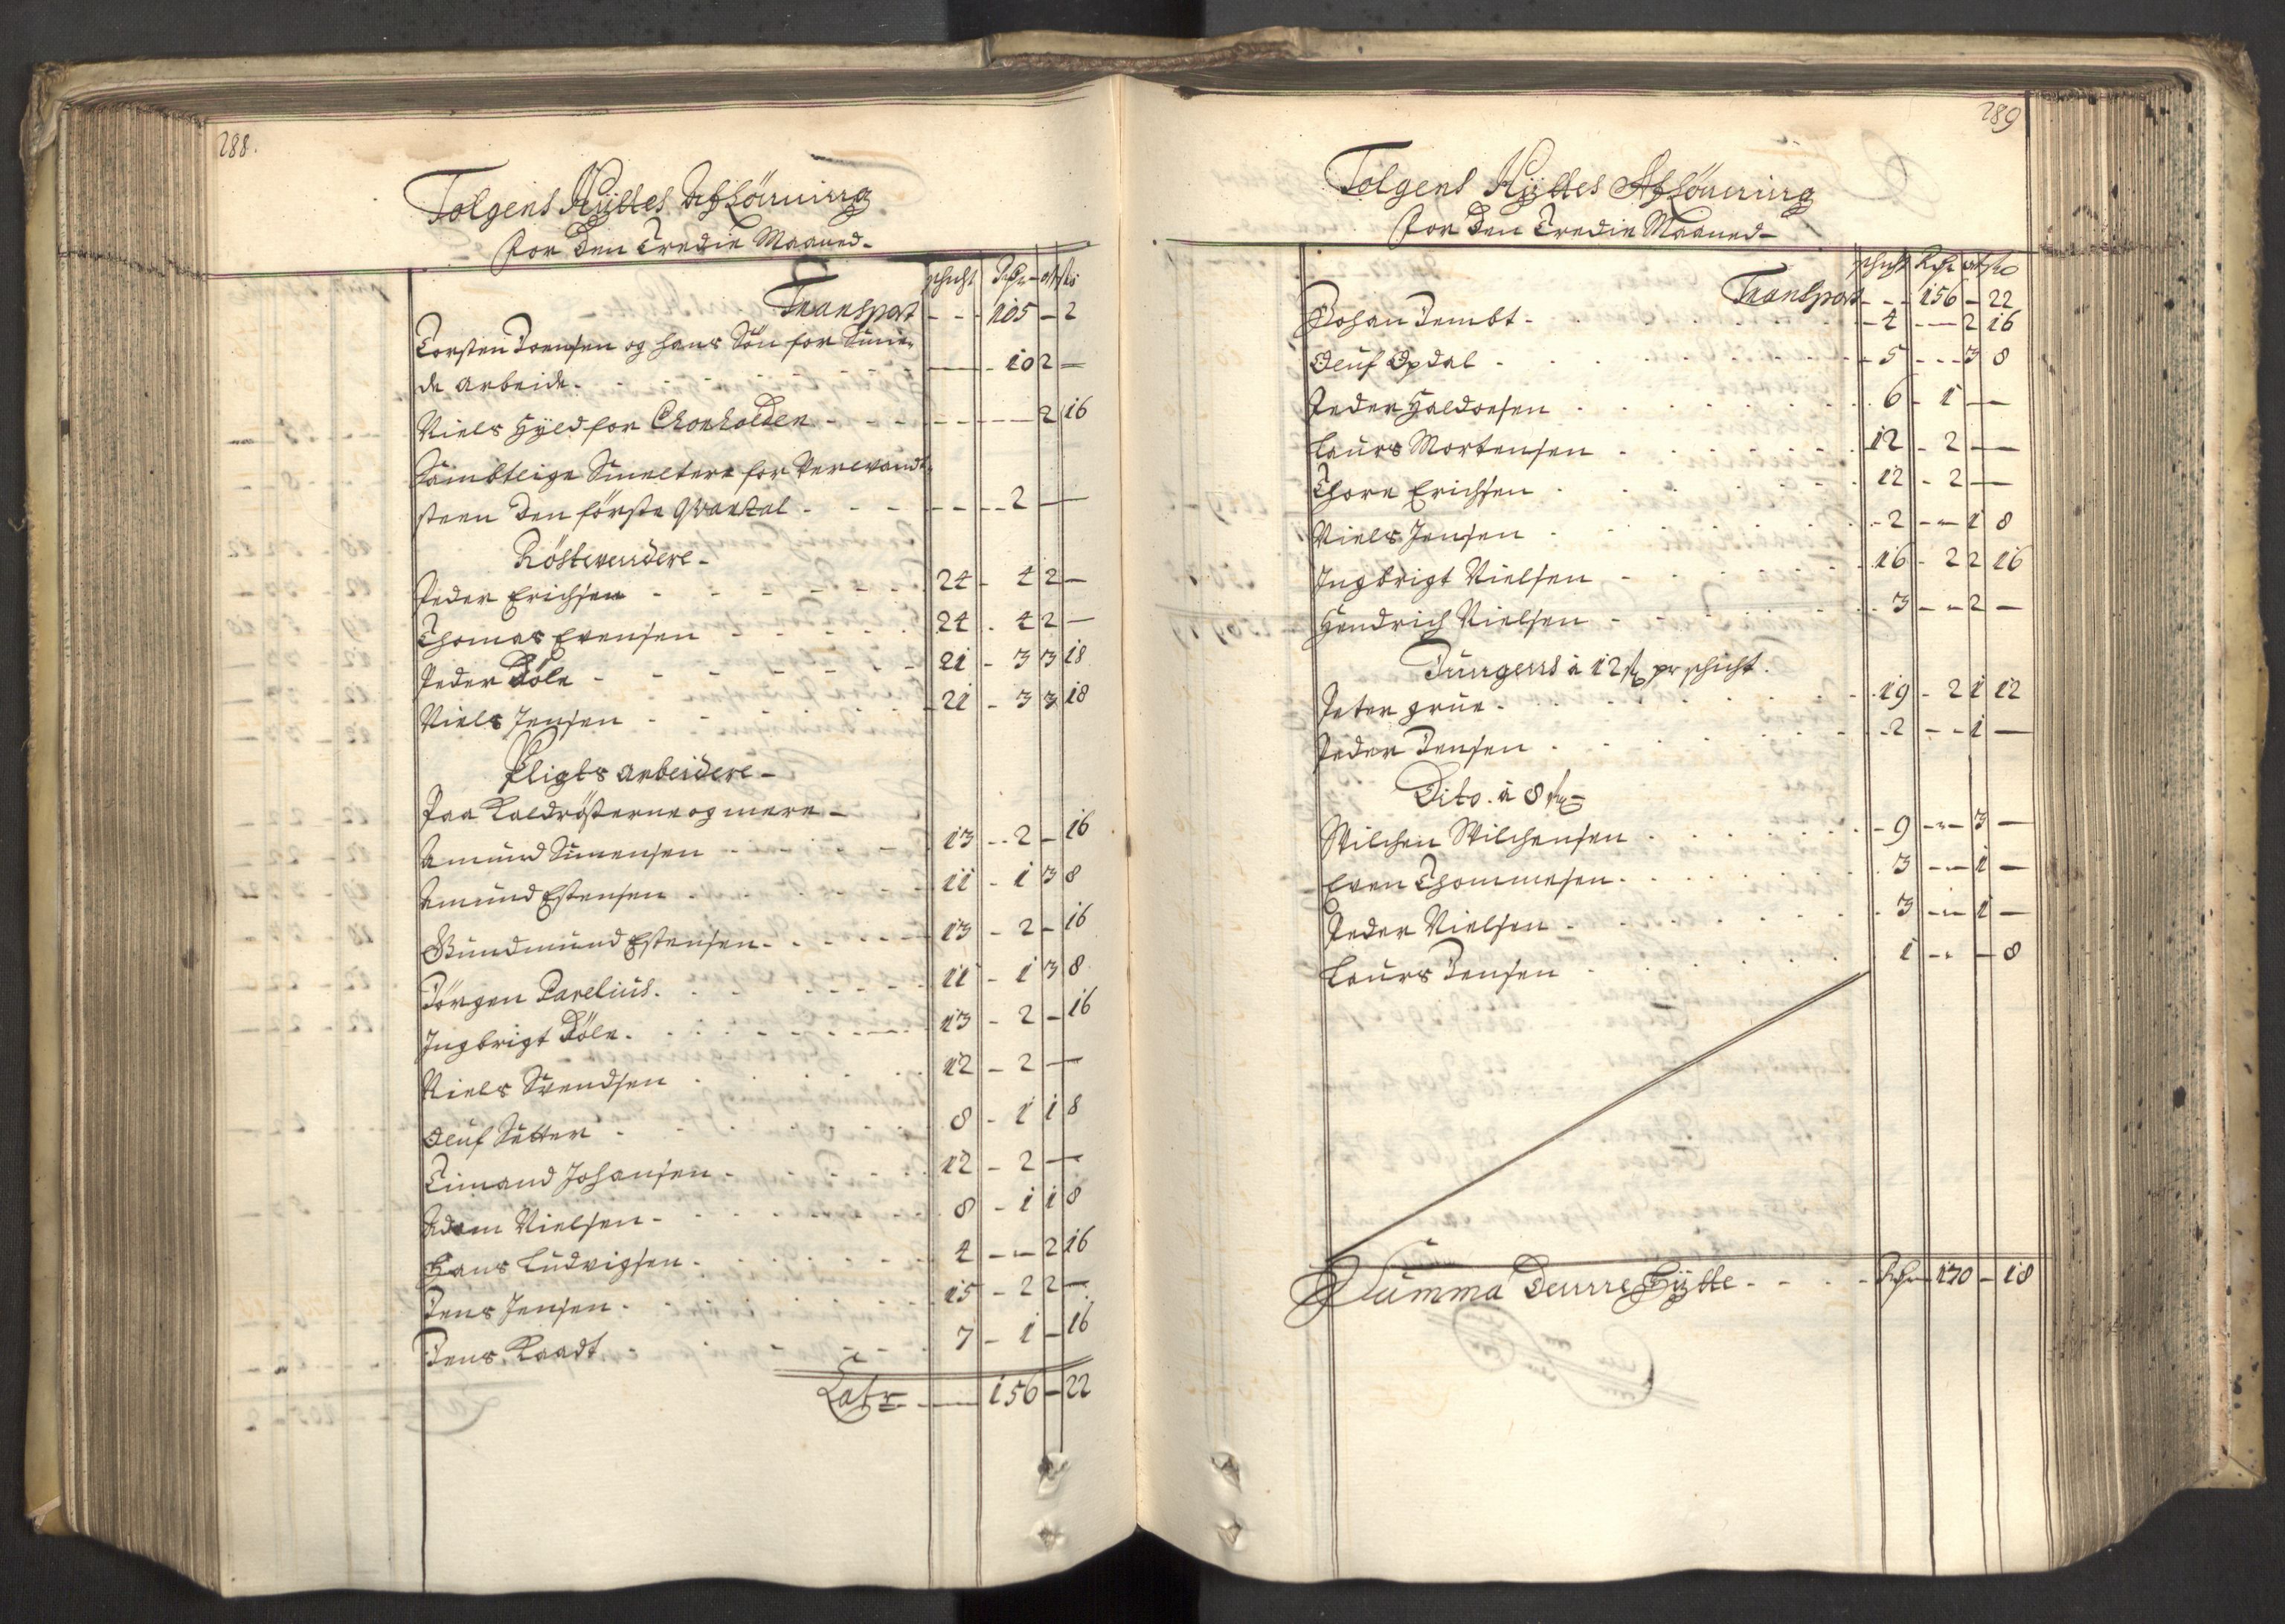 288.
Tolgens Hÿttes Afflönning
for den Tredie Maaned-
schicht Rdr ort sk
Transport - - - 105 - 2
Torsten Joensen og hans Sön for Smie-
de Arbeide - 10 2 -
Niels Hÿld for - - - 2 16
Sambtlige Smeltere for
steen den förste qvartal - - - 2 -
Röstevendere-
Peder Erichsen - 24 - 4 2 -
Thomas Evensen - 24 - 4 2 -
Peder Döle - 21 - 3 3 18
Niels Jensen - 21 - 3 3 18
Pligts arbeidere-
Paa Kaldrösterne og mere-
Amund Simensen - 13 - 2 - 16
Amund Estensen - 11 - 1 3 8
Gundmund Estensen - 13 - 2 - 16
Jörgen Parelius - 11 - 1 3 8
Ingbrigt Döle - 13 - 2 - 16
Niels Svendsen - 12 - 2 -
Oluf Sætter - 8 - 1 1 8
Timand Johansen - 12 - 2 -
Adam Nielsen - 8 - 1 1 8
Hans Ludvigsen - 4 - - 2 16
Jens Jensen - 15 - 2 2 -
Jens Kaadt - 7 - 1 - 16
Latr - 156 - 22
289
Tolgens Hÿttes Afflönning
for den Tredie Maaned-
schicht Rdr ort sk
Transport - - - 156 - 22
Johan Tembt - 4 - - 2 16
Oluf Opdal - 5 - - 3 8
Peder Haldorsen - 6 - 1 -
Laurs Mortensen - 12 - 2 -
Thore Erichsen - 12 - 2 -
Niels Jensen - 2 - - 1 8
Ingbrigt Nielsen - 16 - 2 2 16
Hendrich Nielsen - 3 - - 2 -
Jungens à 12 sk pr schicht.
Peter grüe - 19 - 2 1 12
Peder Jensen - 2 - - 1 -
Dito. à 8 sk-
Wilchen Wilchensen - 9 - - 3 -
Even Thommesen - 3 - - 1 -
Peder Nielsen - 3 - - 1 -
Laurs Jensen - 1 - - - 8
Summa Denne Hÿtte - - - Rdr 170 - 18